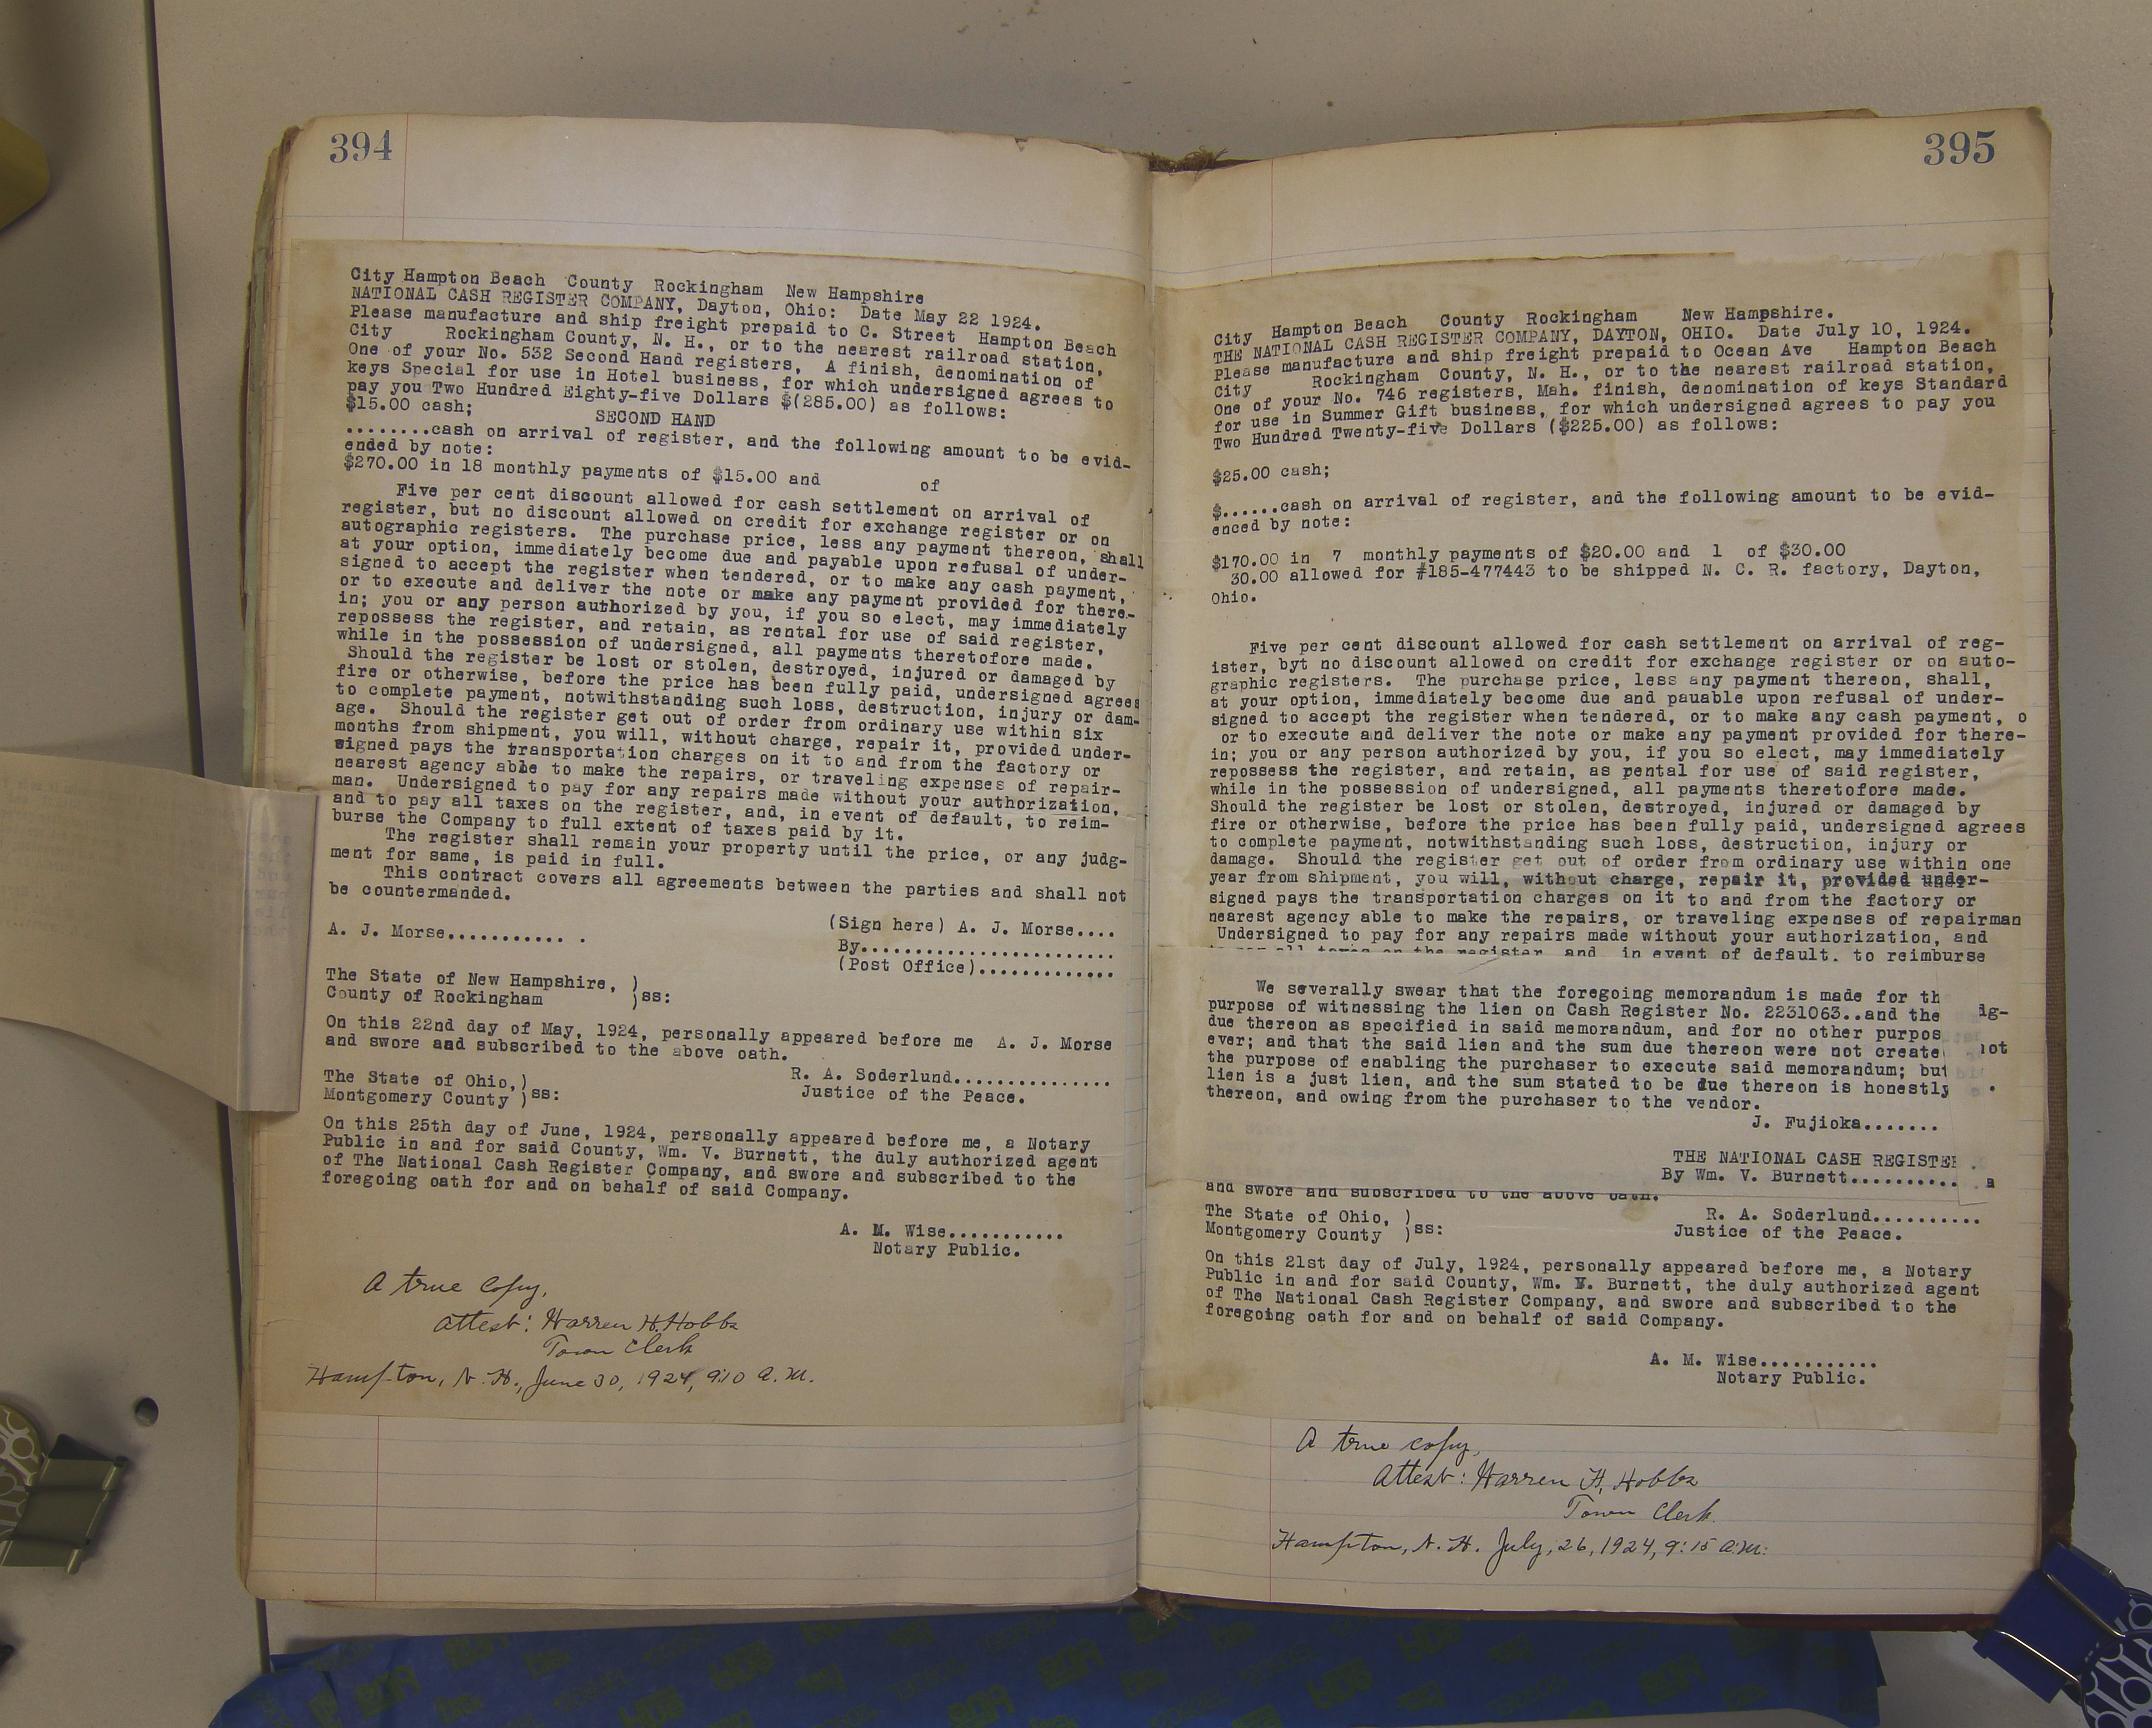 394
City Hampton Beach County Rockingham New Hampshire
NATIONAL CASH REGISTER COMPANY, Dayton, Ohio: Date May 22 1924.
Please manufacture and ship freight prepaid to C. Street Hampton Beach
City Rockingham County, N. H., or to the nearest railroad station,
One of your No. 532 Second Hand registers, A finish, denomination of
keys Special for use in Hotel business, for which undersigned agrees to
pay you Two Hundred Eighty-five Dollars $(285.00) as follows:
$15.00 cash; SECOND HAND
........cash on arrival of register, and the following amount to be evid-
ended by note:
$270.00 in 18 monthly payments of $15.00 and of
Five per cent discount allowed for cash settlement on arrival of
register, but no discount allowed on credit for exchange register or on
autographic registers. The purchase price, less any payment thereon, shall
at your option, immediately become due and payable upon refusal of under-
signed to accept the register when tendered, or to make any cash payment,
or to execute and deliver the note or make any payment provided for there-
in; you or any person authorized by you, if you so elect, may immediately
repossess the register, and retain, as rental for use of said register,
while in the possession of undersigned, all payments theretofore made.
Should the register be lost or stolen, destroyed, injured or damaged by
fire or otherwise, before the price has been fully paid, undersigned agrees
to complete payment, notwithstanding such loss, destruction, injury or dam-
age. Should the register get out of order from ordinary use within six
months from shipment, you will, without charge, repair it, provided under-
signed pays the transportation charges on it to and from the factory or
nearest agency able to make the repairs, or traveling expenses of repair-
man. Undersigned to pay for any repairs made without your authorization,
and to pay all taxes on the register, and, in event of default, to reim-
burse the Company to full extent of taxes paid by it.
The register shall remain your property until the price, or any judg-
ment for same, is paid in full.
This contract covers all agreements between the parties and shall not
be countermanded.
(Sign here) A. J. Morse....
A. J. Morse........... .
By.......................
(Post Office).............
The State of New Hampshire, )
County of Rockingham )ss:
On this 22nd day of May, 1924, personally appeared before me A. J. Morse
and swore and subscribed to the above oath.
R. A. Soderlund...............
The State of Ohio,)
Montgomery County )ss: Justice of the Peace.
On this 25th day of June, 1924, personally appeared before me, a Notary
Public in and for said County, Wm. V. Burnett, the duly authorized agent
of The National Cash Register Company, and swore and subscribed to the
foregoing oath for and on behalf of said Company.
A. M. Wise...........
Notary Public.
A true copy,
Attest: Warren H. Hobbs
Town Clerk
Hampton, N. H., June 30, 1924, 9:10 A.M.
395
City Hampton Beach County Rockingham New Hampshire.
THE NATIONAL CASH REGISTER COMPANY, DAYTON, OHIO. Date July 10, 1924.
Please manufacture and ship freight prepaid to Ocean Ave Hampton Beach
City Rockingham County, N. H., or to the nearest railroad station,
One of your No. 746 registers, Mah. finish, denomination of keys Standard
for use in Summer Gift business, for which undersigned agrees to pay you
Two Hundred Twenty-five Dollars ($225.00) as follows:
$25.00 cash;
$......cash on arrival of register, and the following amount to be evid-
enced by note:
$170.00 in 7 monthly payments of $20.00 and 1 of $30.00
30.00 allowed for #185-477443 to be shipped N. C. R. factory, Dayton,
Ohio.
Five per cent discount allowed for cash settlement on arrival of reg-
ister, byt no discount allowed on credit for exchange register or on auto-
graphic registers. The purchase price, less any payment thereon, shall,
at your option, immediately become due and pauable upon refusal of under-
signed to accept the register when tendered, or to make any cash payment, o
or to execute and deliver the note or make any payment provided for there-
in; you or any person authorized by you, if you so elect, may immediately
repossess the register, and retain, as rental for use of said register,
while in the possession of undersigned, all payments theretofore made.
Should the register be lost or stolen, destroyed, injured or damaged by
fire or otherwise, before the price has been fully paid, undersigned agrees
to complete payment, notwithstanding such loss, destruction, injury or
damage. Should the register get out of order from ordinary use within one
year from shipment, you will, without charge, repair it, provided under-
signed pays the transportation charges on it to and from the factory or
nearest agency able to make the repairs, or traveling expenses of repairman
Undersigned to pay for any repairs made without your authorization, and
all taxes on the register, and, in event of default, to reimburse
We severally swear that the foregoing memorandum is made for th
purpose of witnessing the lien on Cash Register No. 2231063..and the dg-
due thereon as specified in said memorandum, and for no other purpos
ever; and that the said lien and the sum due thereon were not create not
the purpose of enabling the purchaser to execute said memorandum; but
lien is a just lien, and the sum stated to be due thereon is honestly .
thereon, and owing from the purchaser to the vendor.
J. Fujioka.......
THE NATIONAL CASH REGISTE
By Wm. V. Burnett........... a
and swore and subscribed to the above oath.
The State of Ohio, ) R. A. Soderlund..........
Montgomery County )ss: Justice of the Peace.
On this 21st day of July, 1924, personally appeared before me, a Notary
Public in and for said County, Wm. V. Burnett, the duly authorized agent
of The National Cash Register Company, and swore and subscribed to the
foregoing oath for and on behalf of said Company.
A. M. Wise...........
Notary Public.
A true copy,
Attest: Warren H. Hobbs
Town Clerk.
Hampton, N. H. July, 26, 1924, 9:15 A.M.